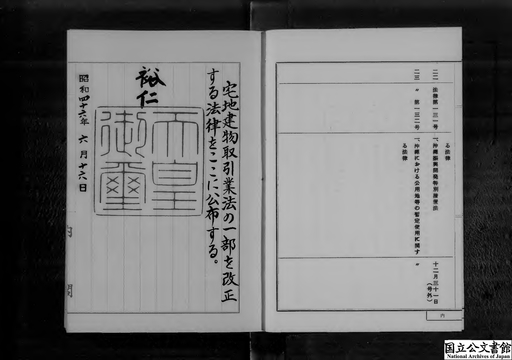 る法律
二二 法律第一三一号 「沖縄振興開発特別措置法
二三 〃 第一三二号 「沖縄における公用地等の暫定使用に関す
る法律
十二月三十一日
(号外)
〃
六
宅地建物取引業法の一部を改正
する法律をここに公布する。
裕仁
天皇
御璽
昭和四十六年 六月十六日
月
国立公文書館
National Archives of Japan